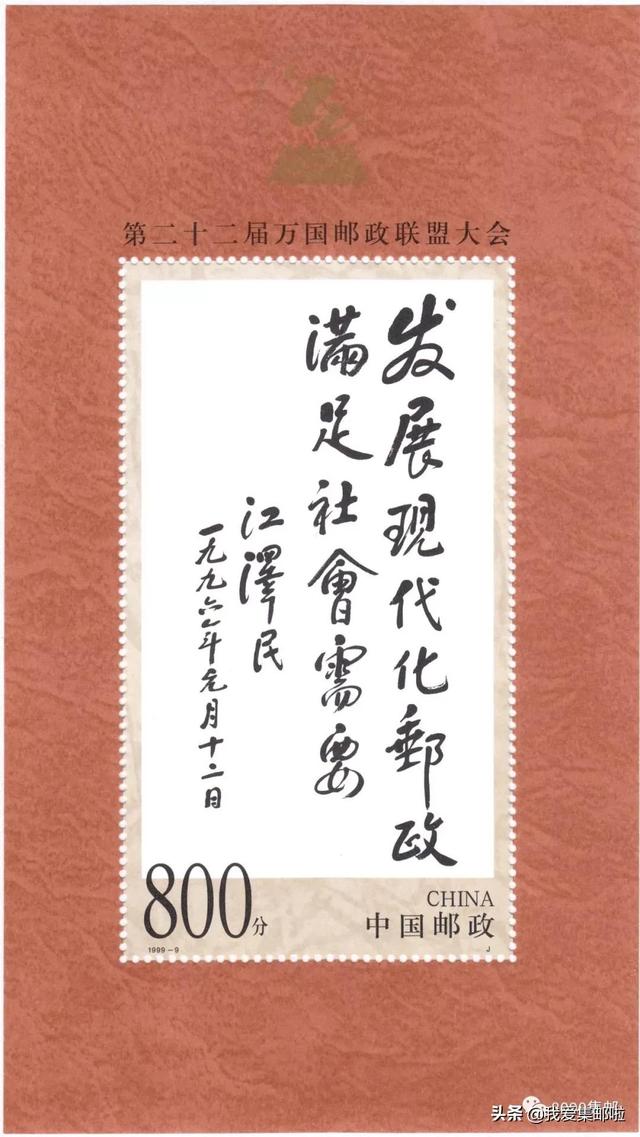 第二十二届万国邮政联盟大会
发展现代化郵政
满足社會需要
江澤民
一九九六年元月十二日
800分
CHINA
中国邮政
1999-9
J
2020集邮
头条 @我爱集邮啦